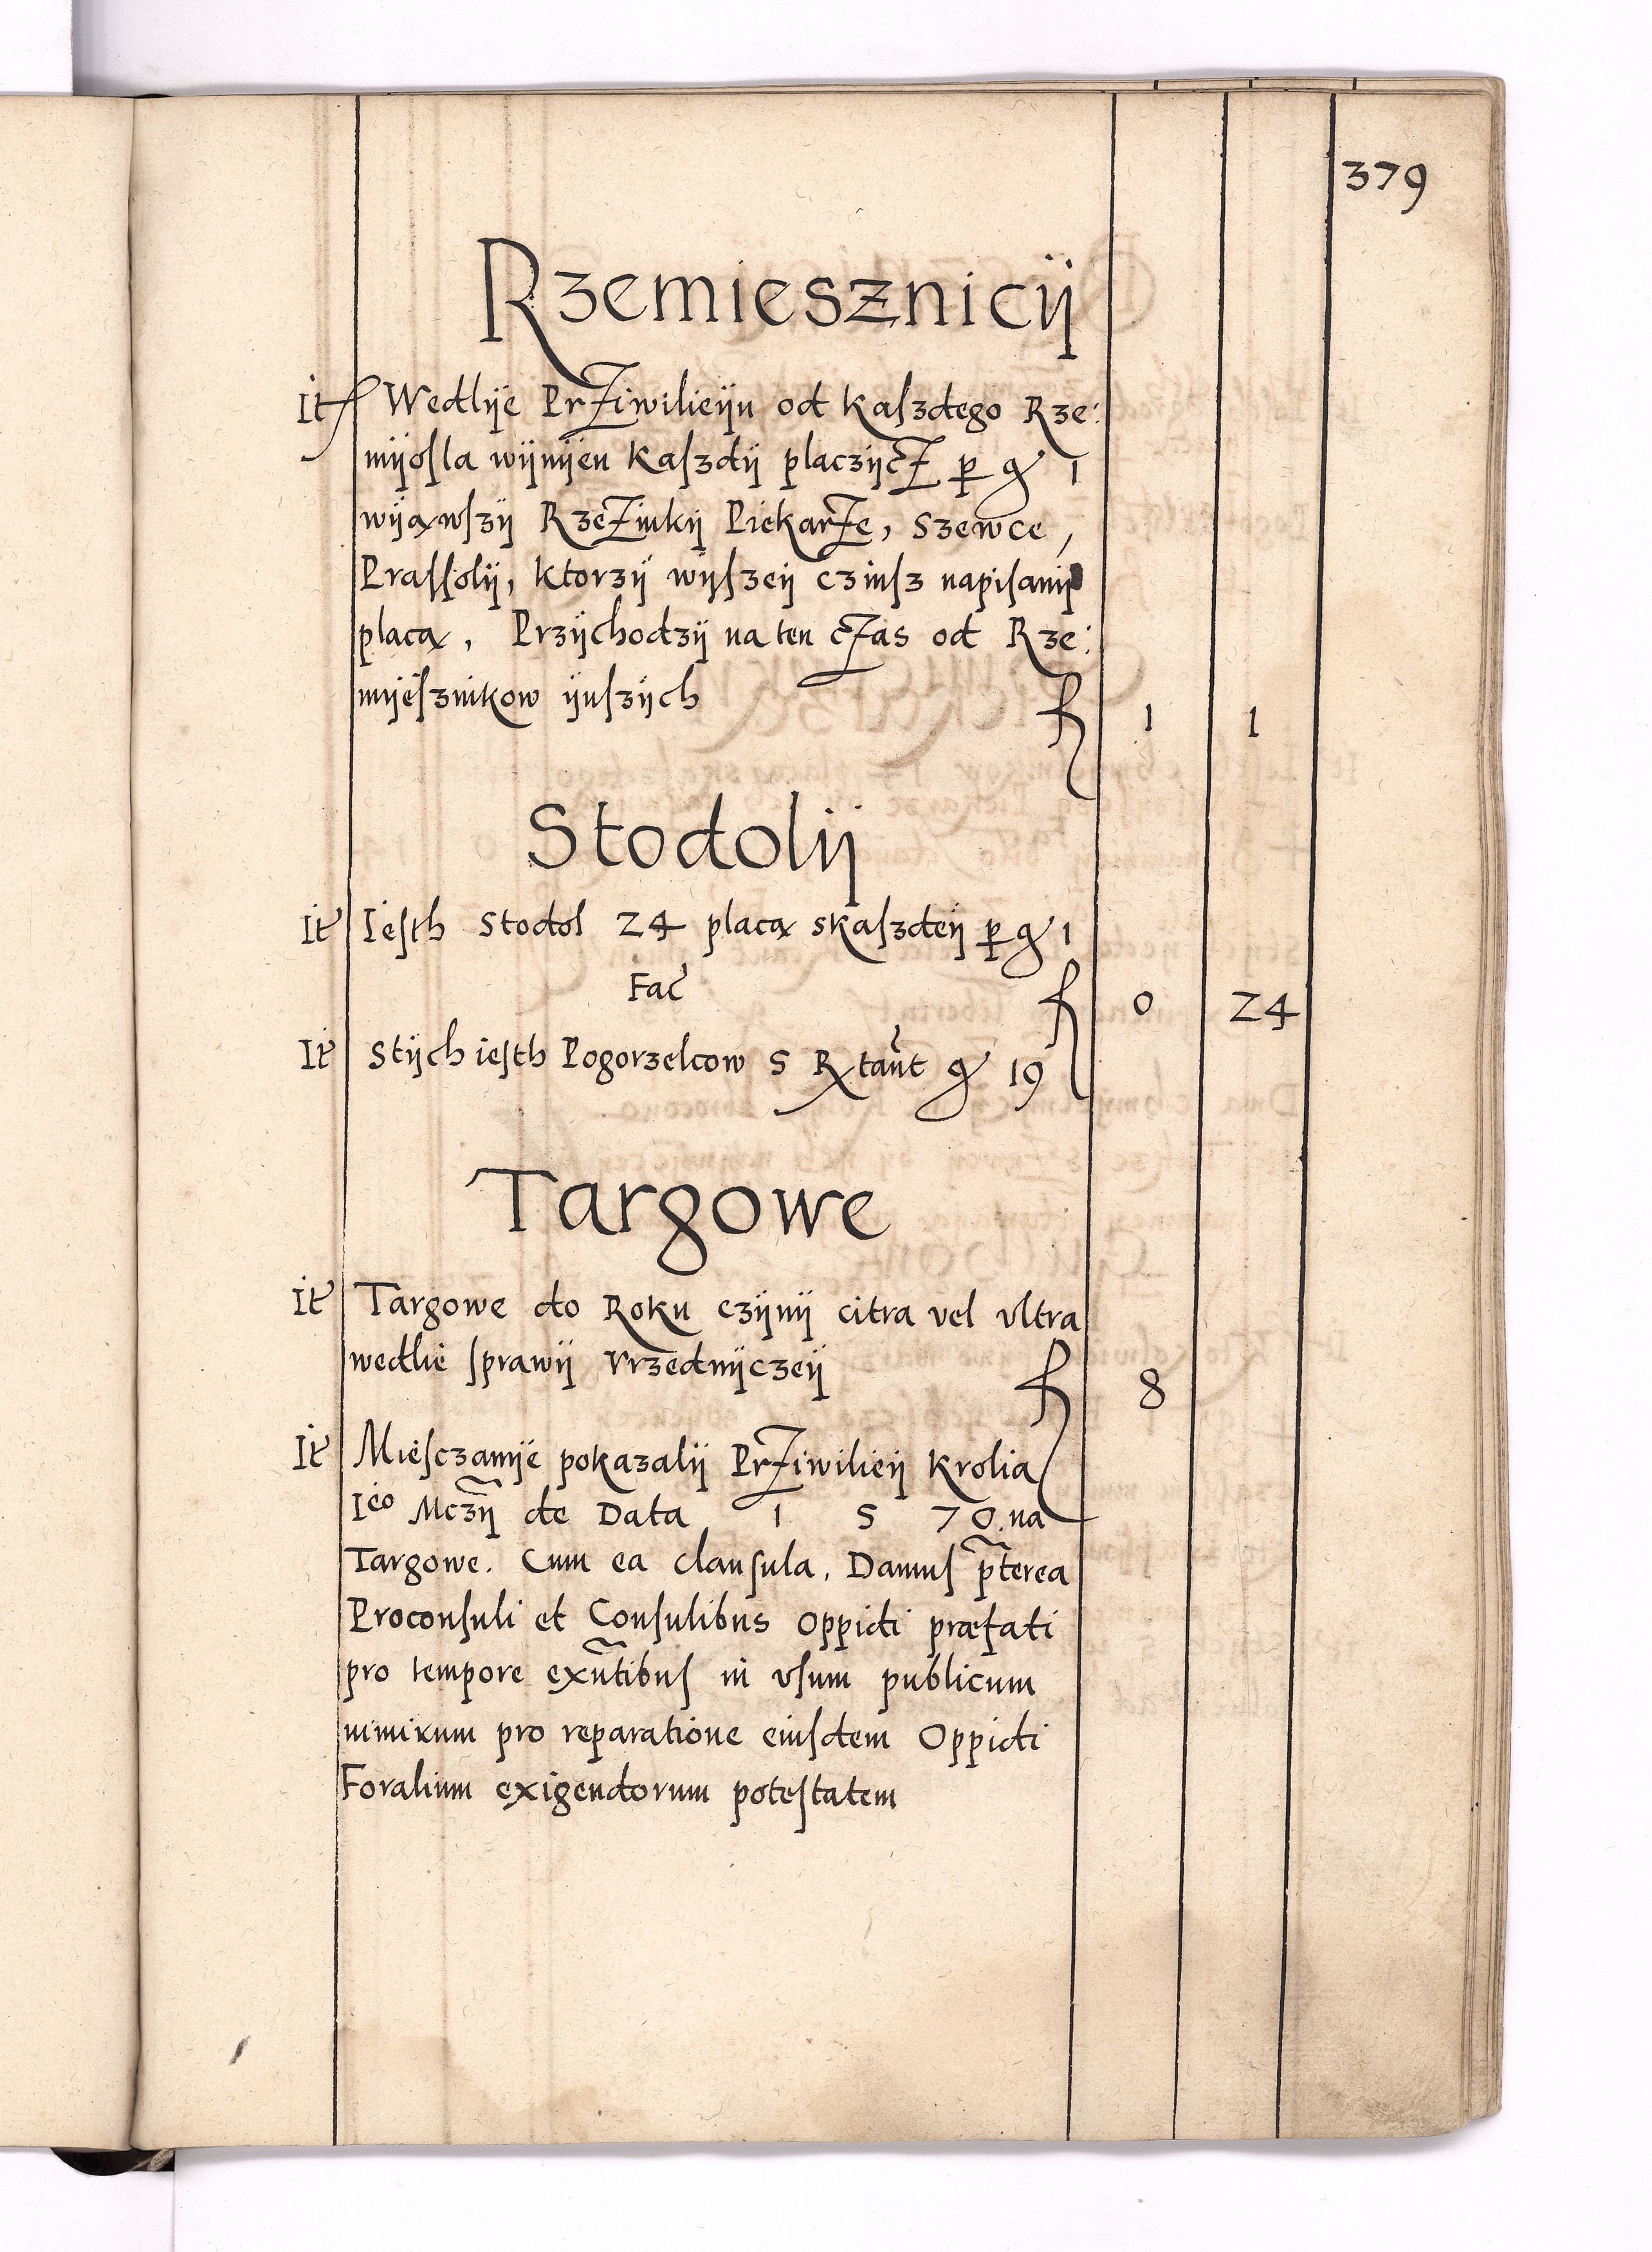 379
Rzemiesznicÿ
It Wedlÿe Prziwilieÿu od kaſzdego Rze:
mÿoſla wÿnÿen kaſzdÿ placzÿcz per gr 1
wÿąwſzÿ Rzeziukÿ Piekarze, Szewce,
Praſſolÿ, ktorzÿ wÿſzeÿ czinſz napiſanÿ
placą, Przÿchodzÿ na ten czas od Rze:
mÿeſznikow ÿnſzÿch f 1 1
Stodolÿ
It Ieſth Stodol 24 placą skaſzdeÿ per gr 1
Fac f 0 24
It Stÿch ieſth Pogorzelcow 5 Rtant gr 19
Targowe
It Targowe do Roku czÿnÿ citra vel vltra
wedlie ſprawÿ vrzednÿczeÿ f 8
It Mieſczanÿe pokazalÿ Prziwilieÿ Krolia
Ieo Mczÿ de Data 1 5 7 0. na
Targowe. Cum ea clauſula, Damuſ pterea
Proconſuli et Conſulibus Oppidi præfati
pro tempore exn̄tibuſ in vſum publicum
nimirum pro reparatione eiuſdem Oppidi
Foralium exigendorum poteſtatem